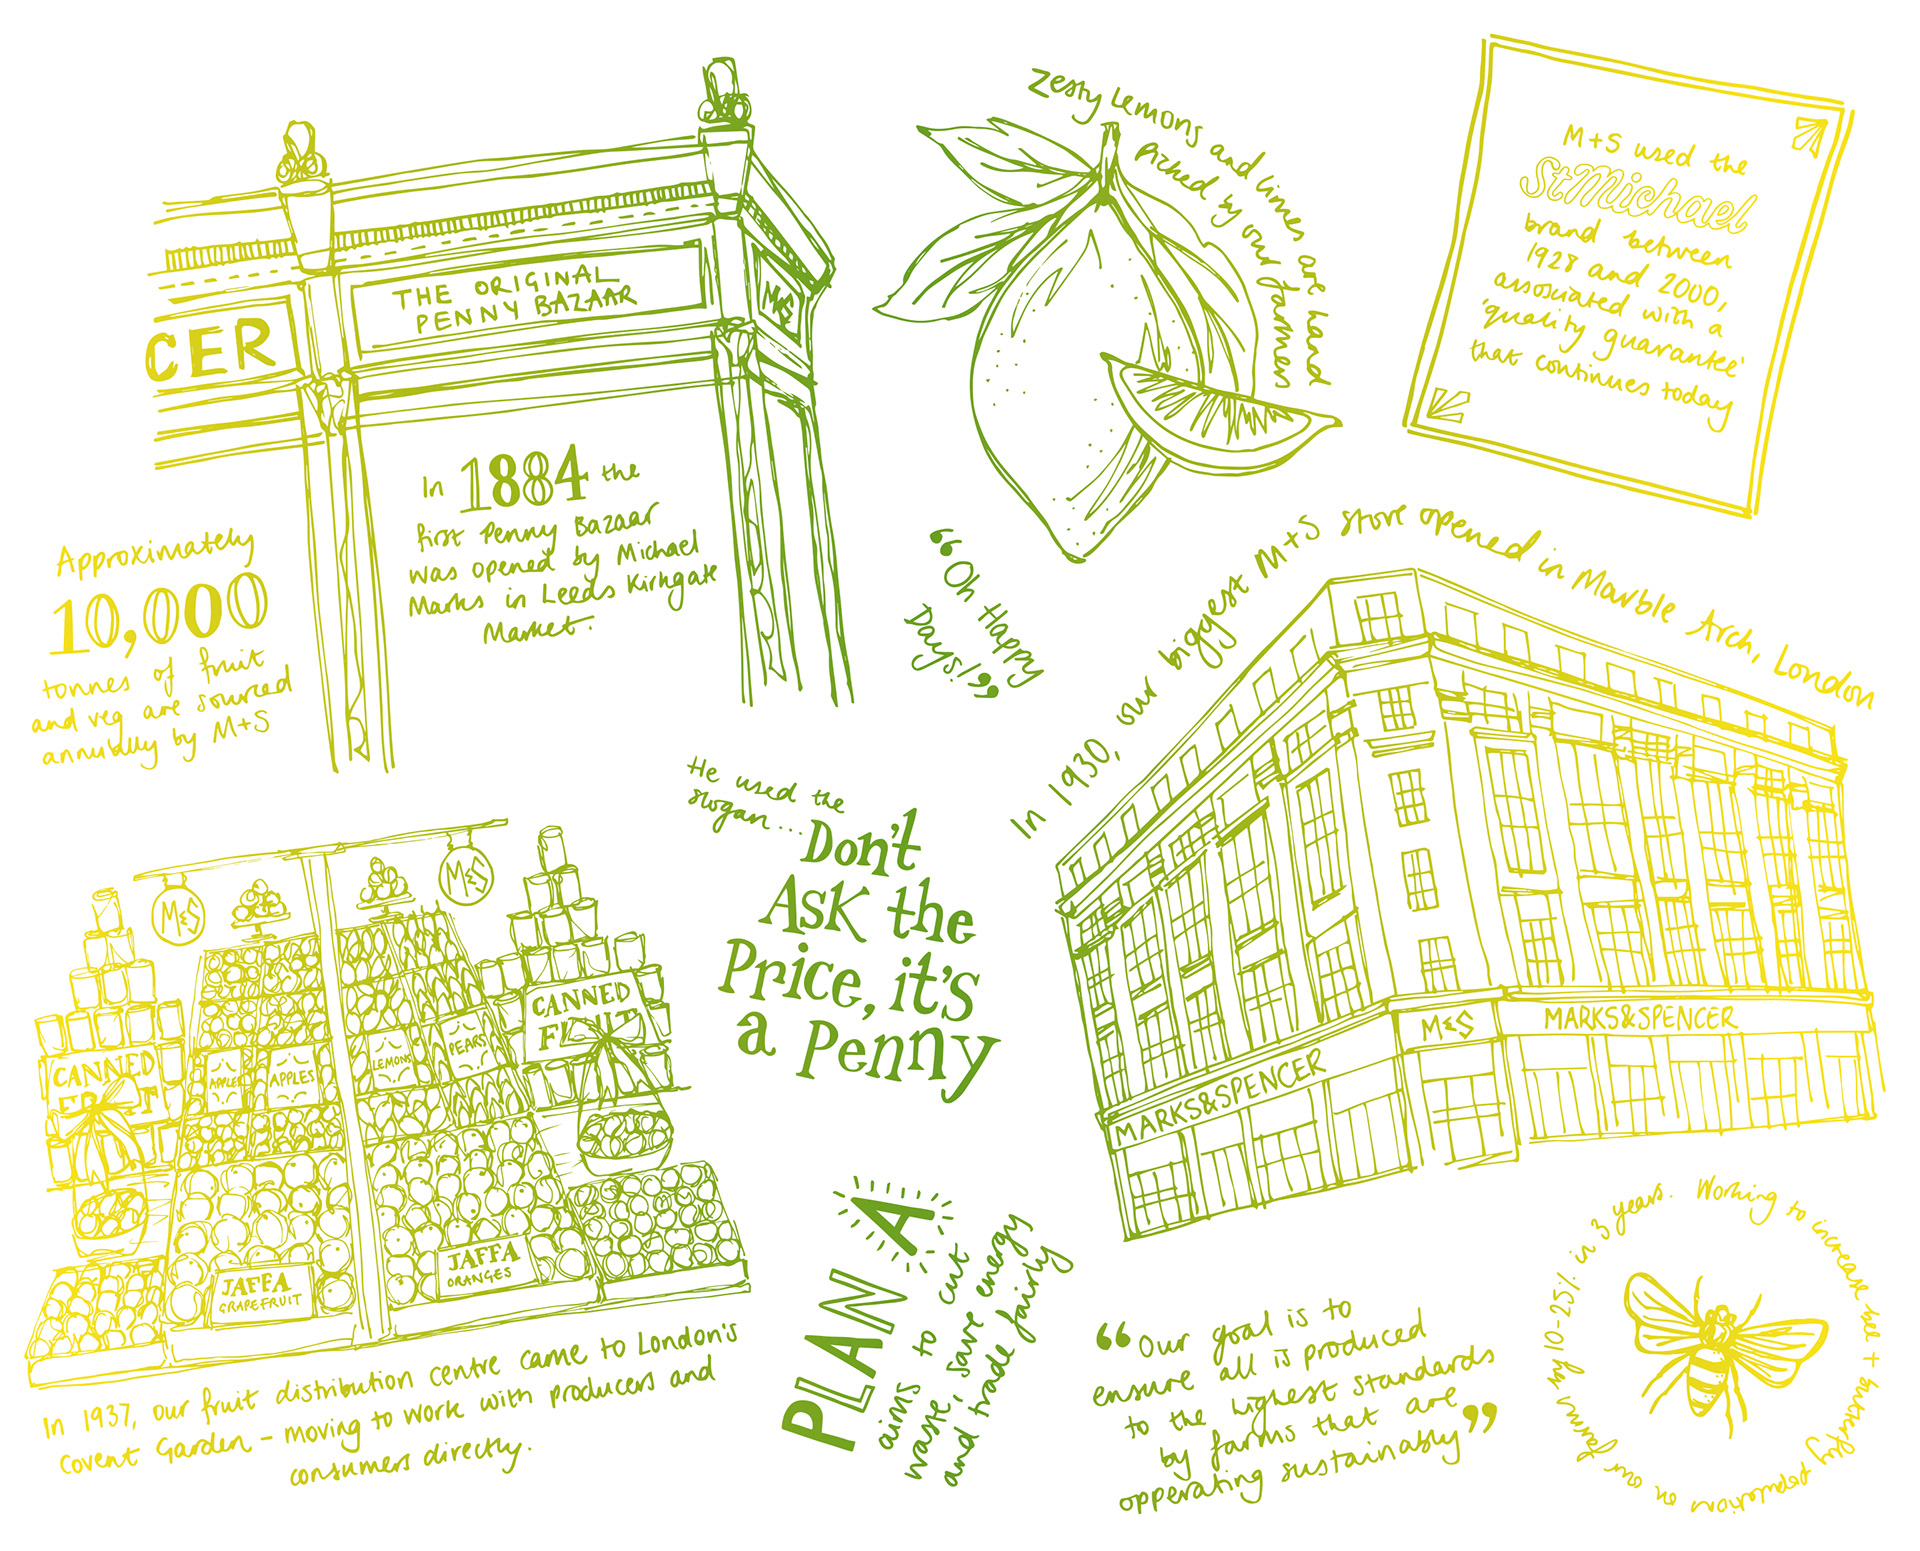 CER
THE ORIGINAL
PENNY BAZAAR
M&S
In 1884 the
first Penny Bazaar
was opened by Michael
Marks in Leeds Kirkgate
Market.
Approximately
10,000
tonnes of fruit
and veg are sourced
annually by M+S
Zesty Lemons and limes are hand
picked by our farmers
M+S used the
StMichael
brand between
1928 and 2000,
associated with a
'quality guarantee'
that continues today
“Oh Happy
Days!”
In 1930, our biggest M+S store opened in Marble Arch, London
MARKS&SPENCER
M&S
MARKS&SPENCER
He used the
slogan...
Don't
Ask the
Price, it's
a Penny
M&S
M&S
CANNED
FRUIT
CANNED
FRUIT
APPLES
APPLES
LEMONS
PEARS
JAFFA
GRAPEFRUIT
JAFFA
ORANGES
In 1937, our fruit distribution centre came to London's
Covent Garden – moving to work with producers and
consumers directly.
PLAN A
aims to cut
waste, save energy
and trade fairly
“Our goal is to
ensure all is produced
to the highest standards
by farms that are
opperating sustainably”
Working to increase bee + butterfly populations on our farms by 10-25% in 3 years.